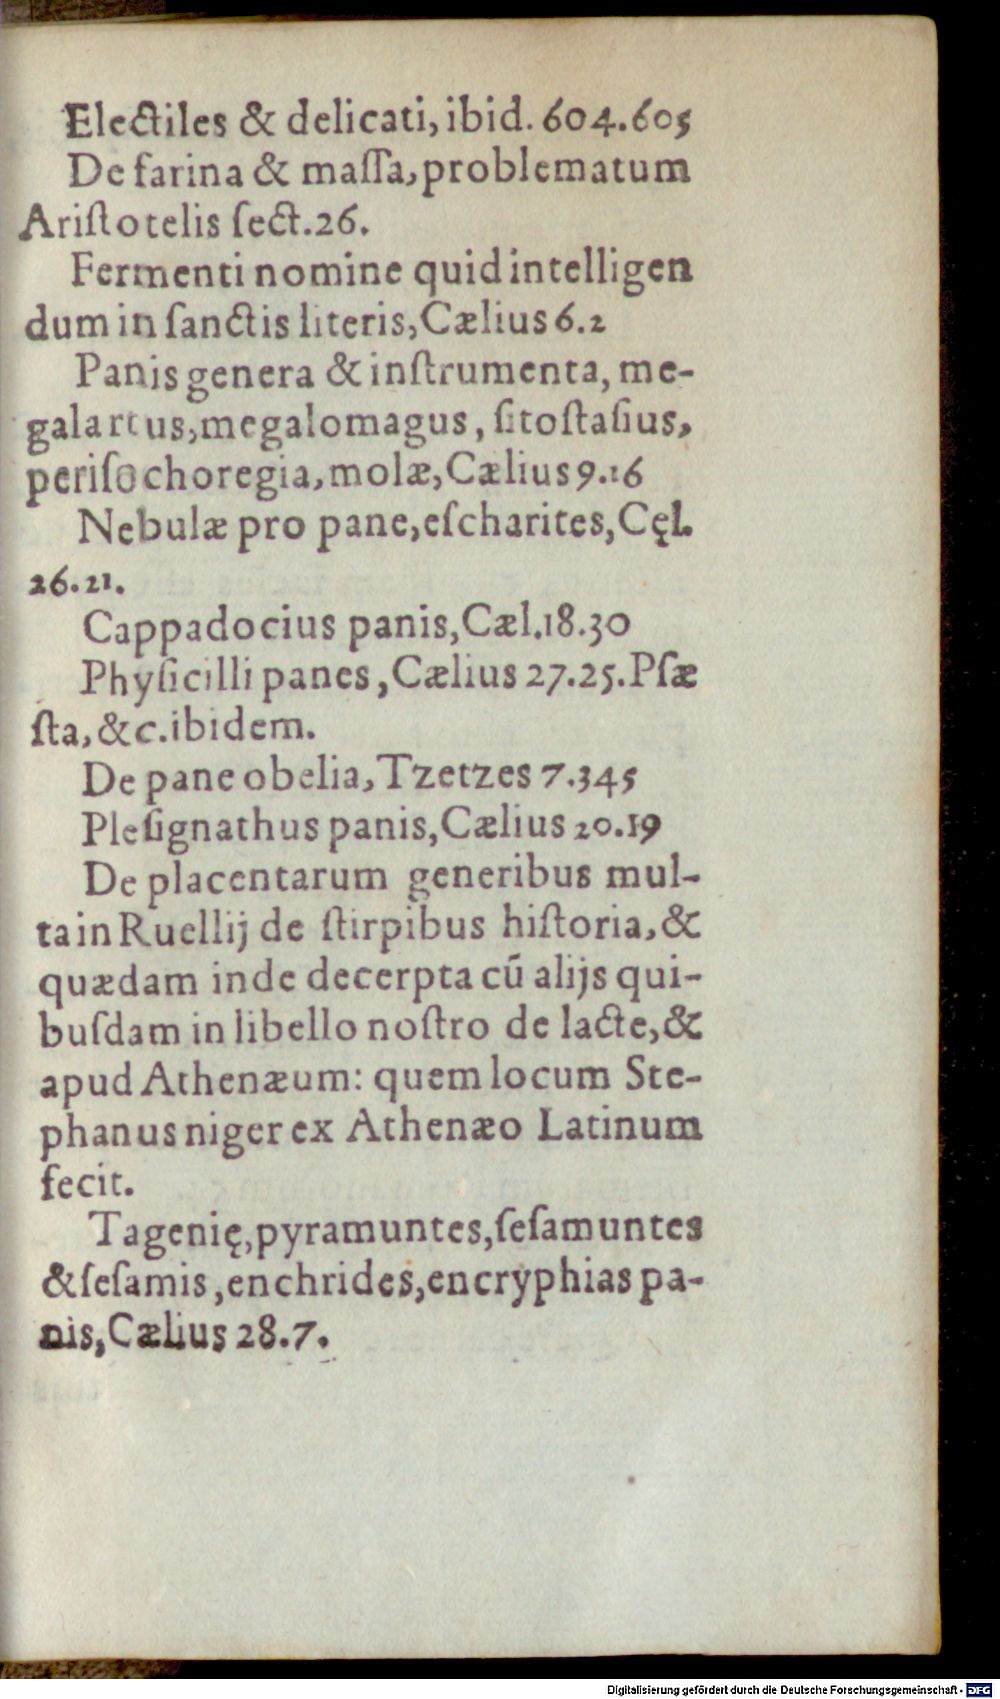 Electiles & delicati, ibid. 604.605
De farina & maſſa, problematum
Ariſtotelis ſect. 26.
Fermenti nomine quid intelligen
dum in ſanctis literis, Cælius 6.2
Panis genera & inſtrumenta, me-
galartus, megalomagus, ſitoſtaſius,
periſochoregia, molæ, Cælius 9.16
Nebulæ pro pane, eſcharites, Cęl.
26.21.
Cappadocius panis, Cæl. 18.30
Phyſicilli panes, Cælius 27.25. Pſæ
ſta, &c. ibidem.
De pane obelia, Tzetzes 7.345
Pleſignathus panis, Cælius 20.19
De placentarum generibus mul-
ta in Ruellij de ſtirpibus hiſtoria, &
quædam inde decerpta cū alijs qui-
buſdam in libello noſtro de lacte, &
apud Athenæum: quem locum Ste-
phanus niger ex Athenæo Latinum
fecit.
Tagenię, pyramuntes, ſeſamuntes
& ſeſamis, enchrides, encryphias pa-
nis, Cælius 28.7.
Digitalisierung gefördert durch die Deutsche Forschungsgemeinschaft - DFG